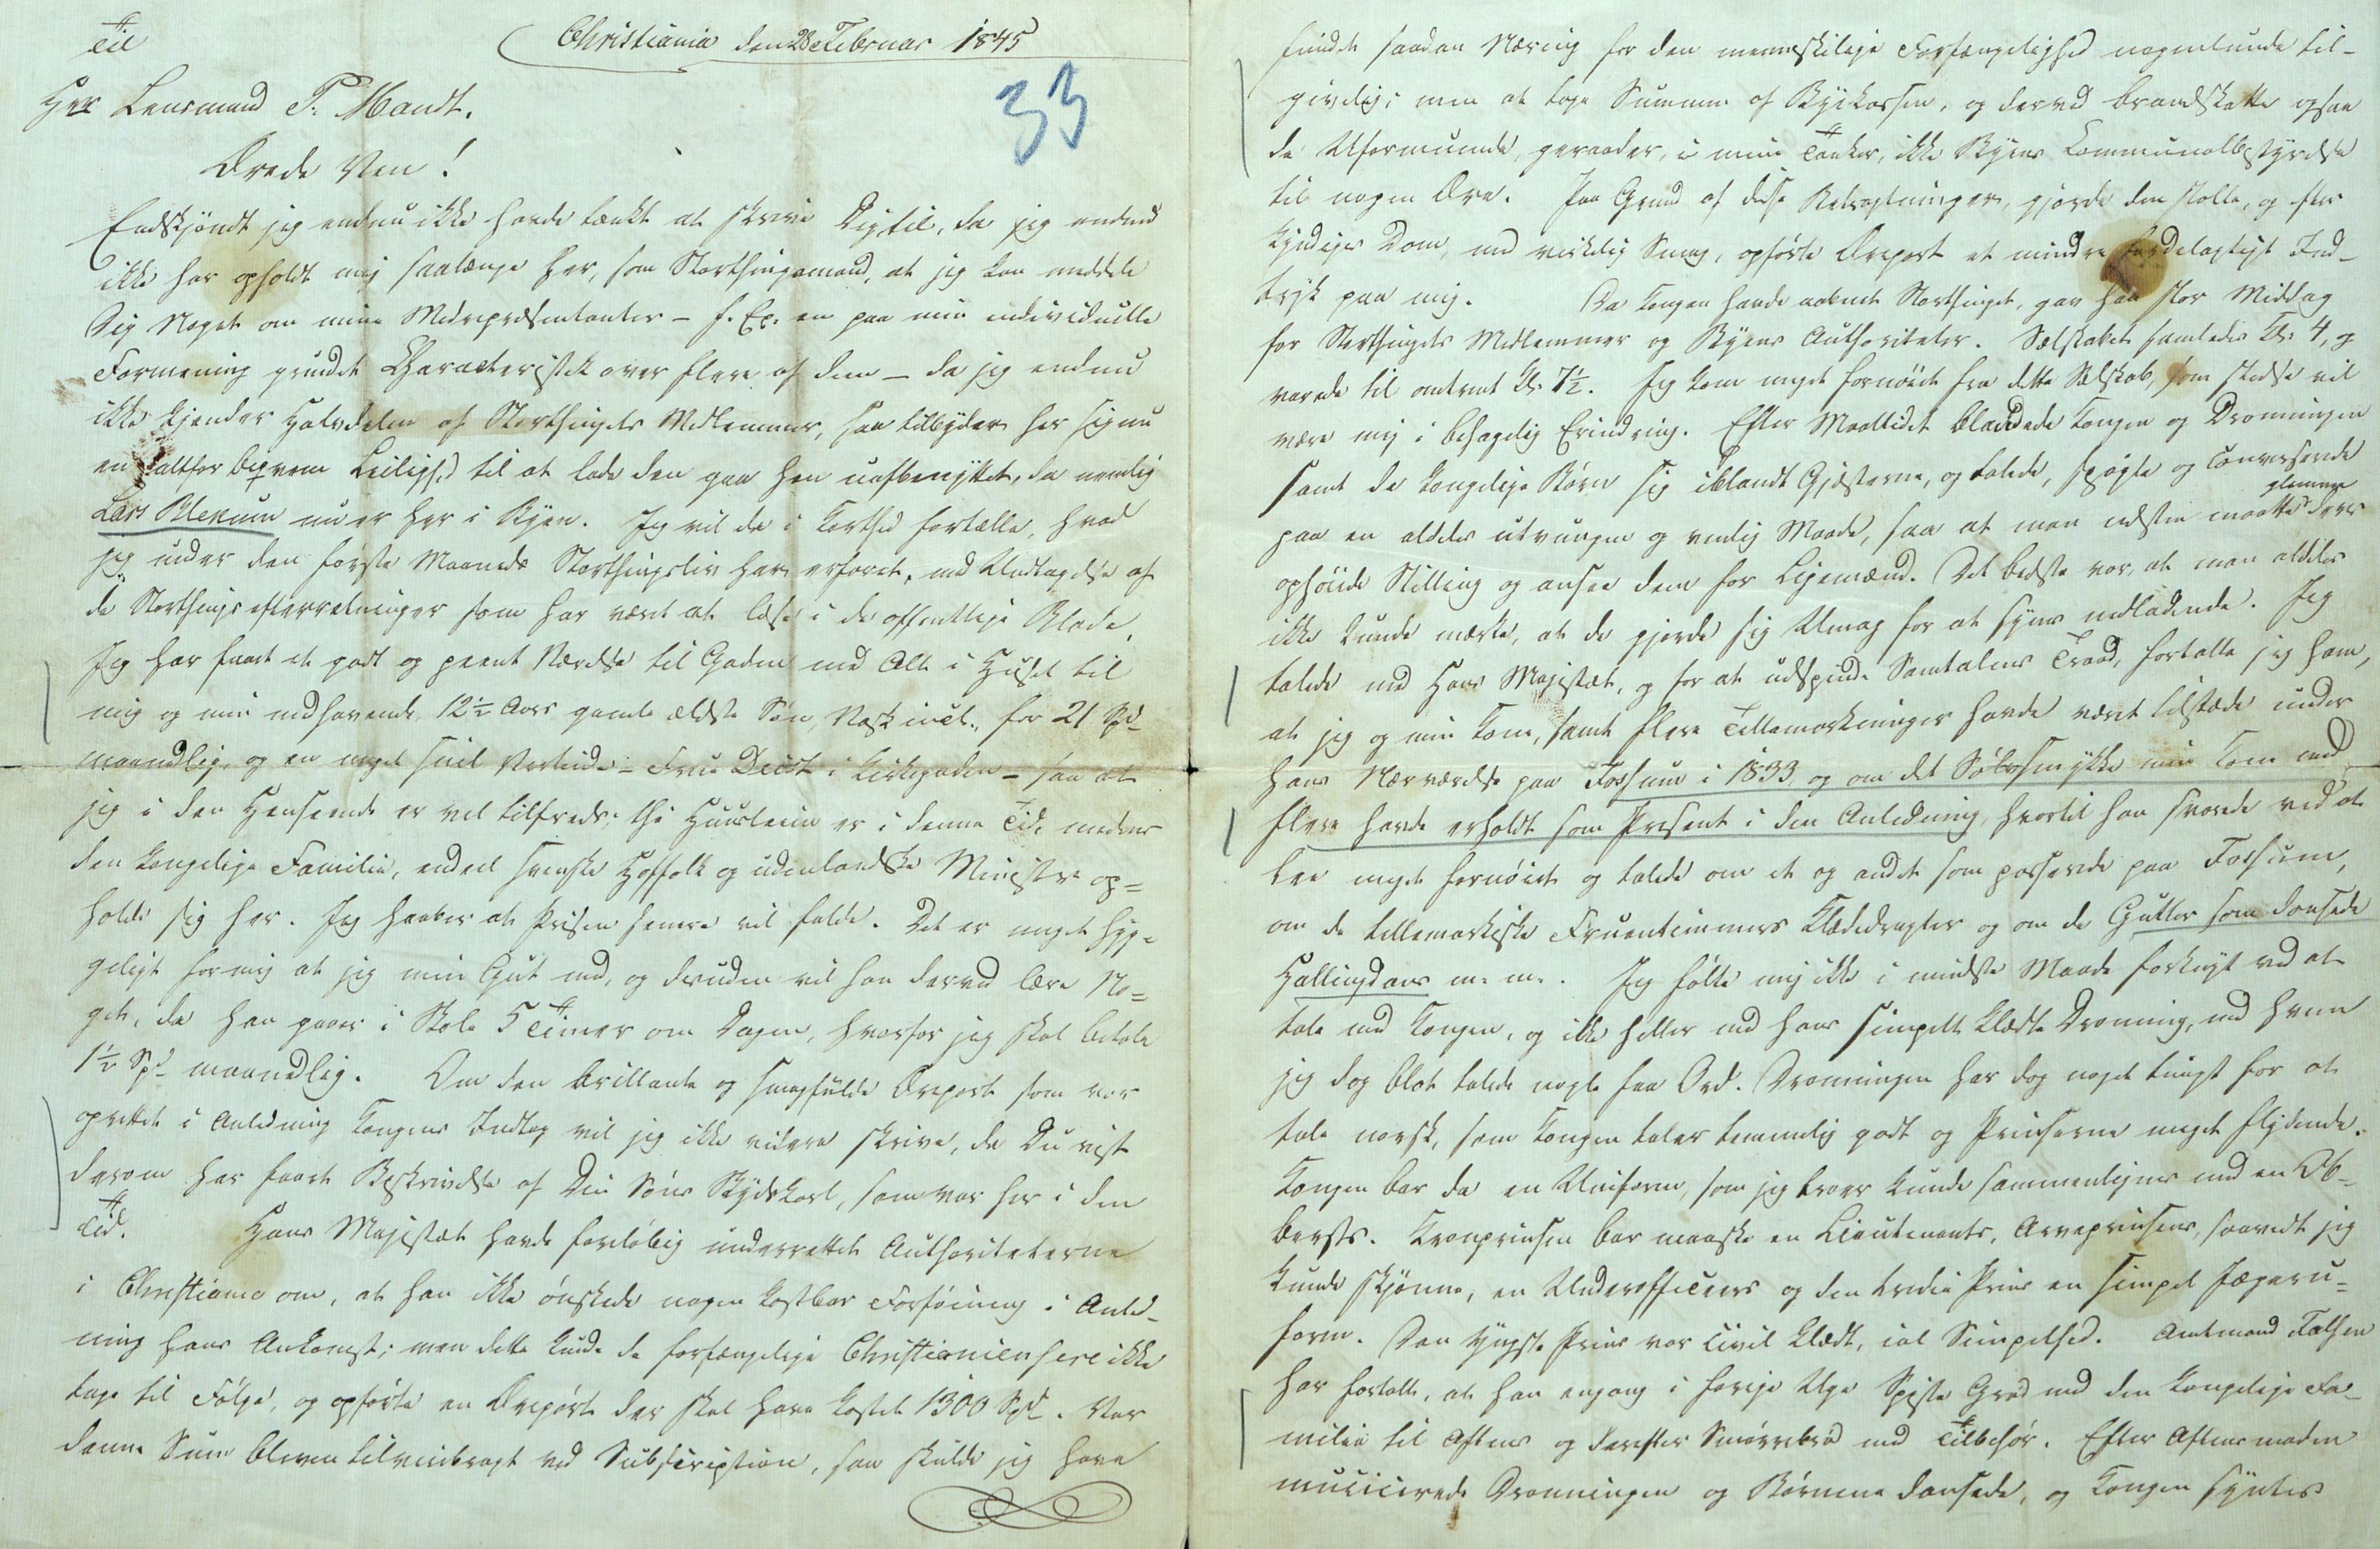 Christiania den 28 Februar 1845
Til
Herr Lensmand P. Mandt.
33
Ærede Ven!
Endskjöndt jeg endnu ikke havde tænkt at skrive Dig til, da jeg endnu
ikke har opholdt mig saalænge her, som Storthingsmand, at jeg kan meddele
Dig Noget om mine Medrepræsentanter – f. Ex. en paa min individuelle
Formening grundet Characteristik over flere af dem – da jeg endnu
ikke kjender Halvdelen af Storthingets Medlemmer, saa tilbyder her sig nu
en altfor beqvem Leilighed til at lade den gaa hen uafbenyttet, da nemlig
Lars Blekum nu er her i Byen. Jeg vil da i Korthed fortælle, hvad
jeg under den første Maaneds Storthingsliv har erfaret, med Undtagelse af
de Storthingsefterretninger som har været at læse i de offentlige Blade.
Jeg har faaet et godt og peent Værelse til Gaden med Alt i Huset til
mig og min medhavende 12½ Aars gamle ældste Søn, Vask incl., for 21 Spd
maanedlig, og en meget snil Vertinde – Frue Diest i Kirkegaden – saa at
jeg i den Henseende er vel tilfreds; thi Huusleien er i denne Tid, medens
den kongelige Familie, endeel svenske Hoffolk og udenlandske Ministre op=
holde sig her. Jeg haaber at Prisen senere vil falde. Det er meget hyg=
geligt for mig at jeg min Gut med, og desuden vil han derved lære No=
get, da han gaaer i Skole 5 Timer om Dagen, hvorfor jeg skal betale
1½ Spd maanedlig. Om den brillante og smagfulde Æreport som var
oprettet i Anledning Kongens Indtog vil jeg ikke videre skrive, da Du vist
derom har faaet Beskrivelse af Din Søns Skydskarl, som var her i den
Tid. Hans Majestæt havde foreløbig underrettet Authoriteterne
i Christiania om, at han ikke ønskede nogen kostbar Forföining i Anled-
ning hans Ankomst; men dette kunde de forfængelige Christianiensere ikke
tage til Følge, og opførte en Æreport der skal have kostet 1300 Spd. Var
denne Sum bleven tilveiebragt ved Subscription, saa skulde jeg have
fundet saadan Næring for den menneskelige Forfængelighed nogenlunde til-
givelig; men at tage Summen af Bykassen, og derved brandskatte ogsaa
de Uformuende, geraader, i mine Tanker, ikke Byens Communalbestyrelse
til nogen Ære. Paa Grund af disse Betragtninger, gjorde den stolte, og efter
Kyndiges Dom, med virkelig Smag, opførte Æreport et mindre fordelagtigt Ind-
tryk paa mig. Da Kongen havde aabnet Storthinget, gav han stor Middag
for Storthingets Medlemmer og Byens Authoriteter. Selskabet samledes Kl. 4, og
varede til omtrent Kl. 7½. Jeg kom meget fornøiet fra dette Selskab, som stedse vil
være mig i behagelig Erindring. Efter Maaltidet blandede Kongen og Dronningen
samt de kongelige Børn sig iblandt Gjæsterne, og talede, spøgte og converserede
paa en aldeles utvungen og venlig Maade, saa at man næsten maatte glemme deres
ophøiede Stilling og ansee dem for Ligemænd. Det bedste var, at man aldeles
ikke kunde mærke, at de gjorde sig Umag for at synes nedladende. Jeg
talede med Hans Majestæt, og for at udspinde Samtalens Traad, fortalte jeg ham,
at jeg og min Kone, samt flere Tellemarkinger havde været tilstæde under
hans Nærværelse paa Fossum i 1833, og om det Sølvsmykke min Kone med
flere havde erholdt som Present i den Anledning, hvortil han svarede ved at
lee meget fornøiet og talede om et og andet som passerede paa Fossum,
om de tellemarkiske Fruentimmers Klædedragter og om de Gutter som dansede
Hallingdans m. m. Jeg følte mig ikke i mindste Maade forknyt ved at
tale med Kongen, og ikke heller med hans simpelt klædte Dronning, med hvem
jeg dog blot talede nogle faa Ord. Dronningen har dog noget tungt for at
tale norsk, som Kongen taler temmelig godt og Prinserne meget flydende.
Kongen bar da en Uniform, som jeg troer kunde sammenlignes med en Ob-
bersts. Kronprinsen bar maaske en Lieutenants, Arveprinsens, saavidt jeg
kunde skjønne, en Underofficeers og den tredie Prins en simpel Jægeru=
form. Den yngste Prins var civil klædt, ial Simpelhed. Amtmand Falsen
har fortalt, at han engang i forrige Uge spiste Grød med den kongelige Fa-
milie til Aftens og derefter Smørrebrød med Tilbehør. Efter Aftensmaden
musicerede Dronningen og Børnene dansede, og Kongen syntes